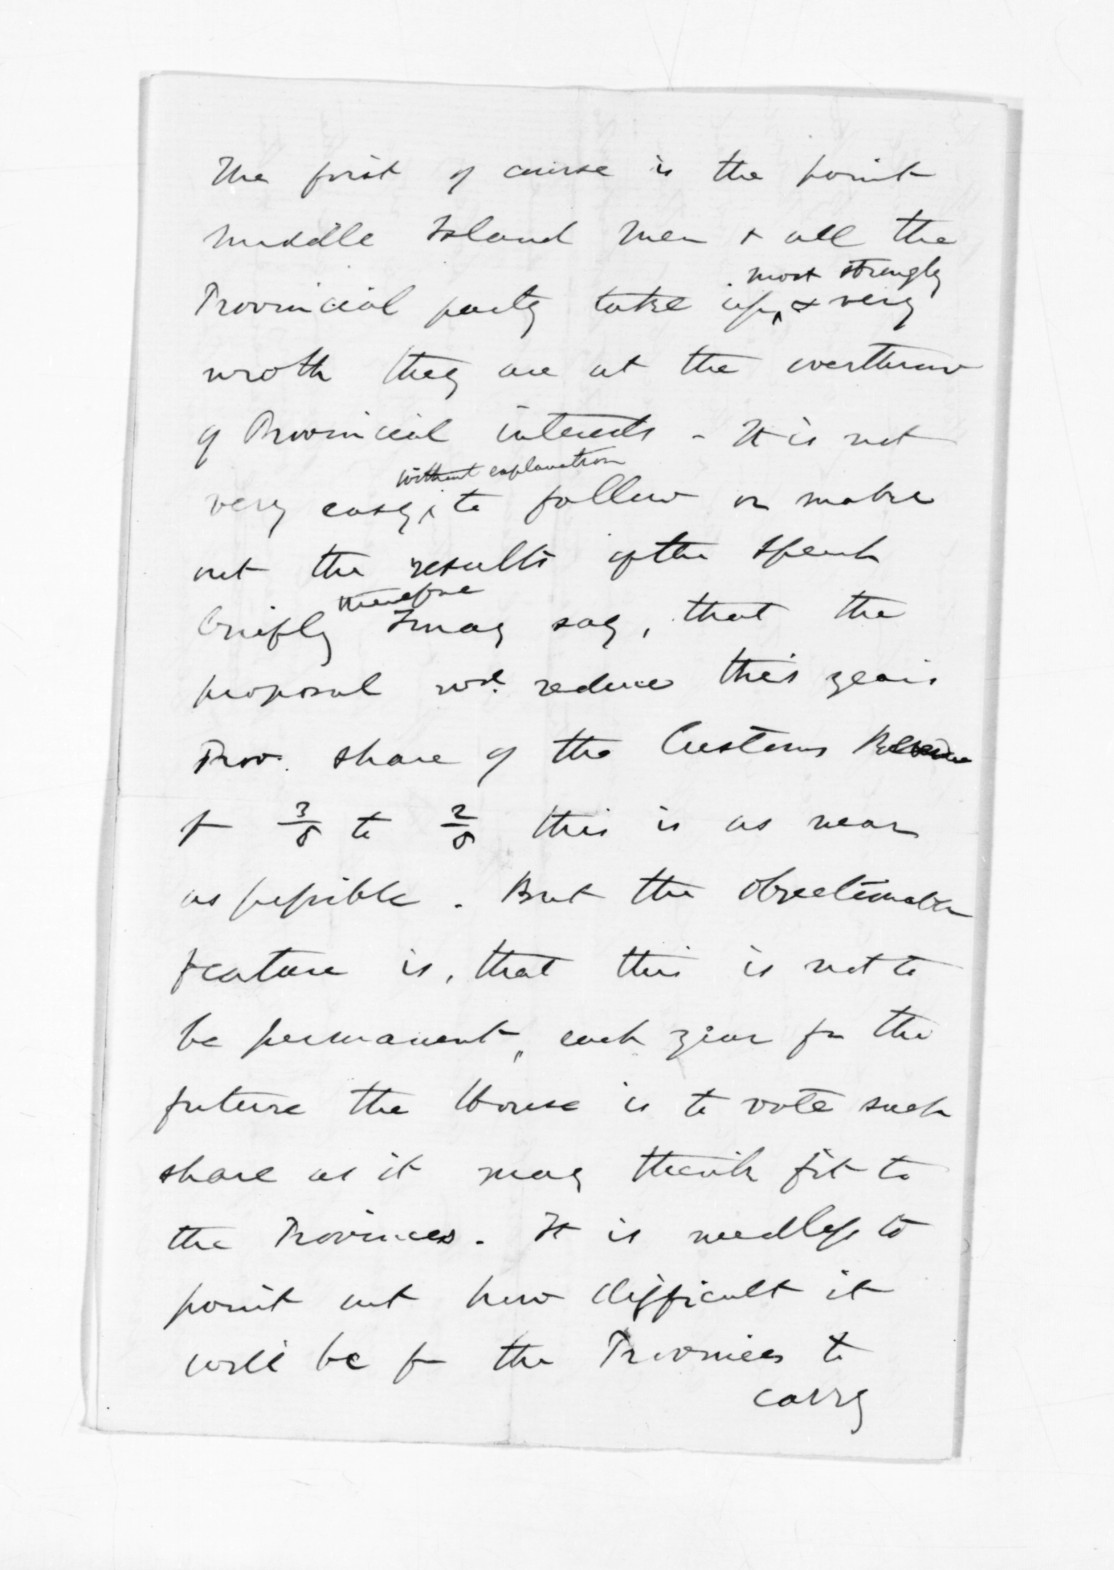 The first of course is the point
Middle Island men & all the
most strongly
Provincial party take up, & very
wroth they are at the overthrow
of Provincial interests - It is not
without explanation
very easy, to follow or make
out the results of the speech
therefore
briefly I may say, that the
proposal wd. reduce this years
Prov. share of the Customs Revenue
fr 3/8 to 2/8 this is as near
as possible. But the objectionable
feature is, that this is not to
be permanent, each year for the
future the House is to vote such
share as it may think fit to
the Provinces. It is needless to
point out how difficult it
will be for the Provinces to
carry